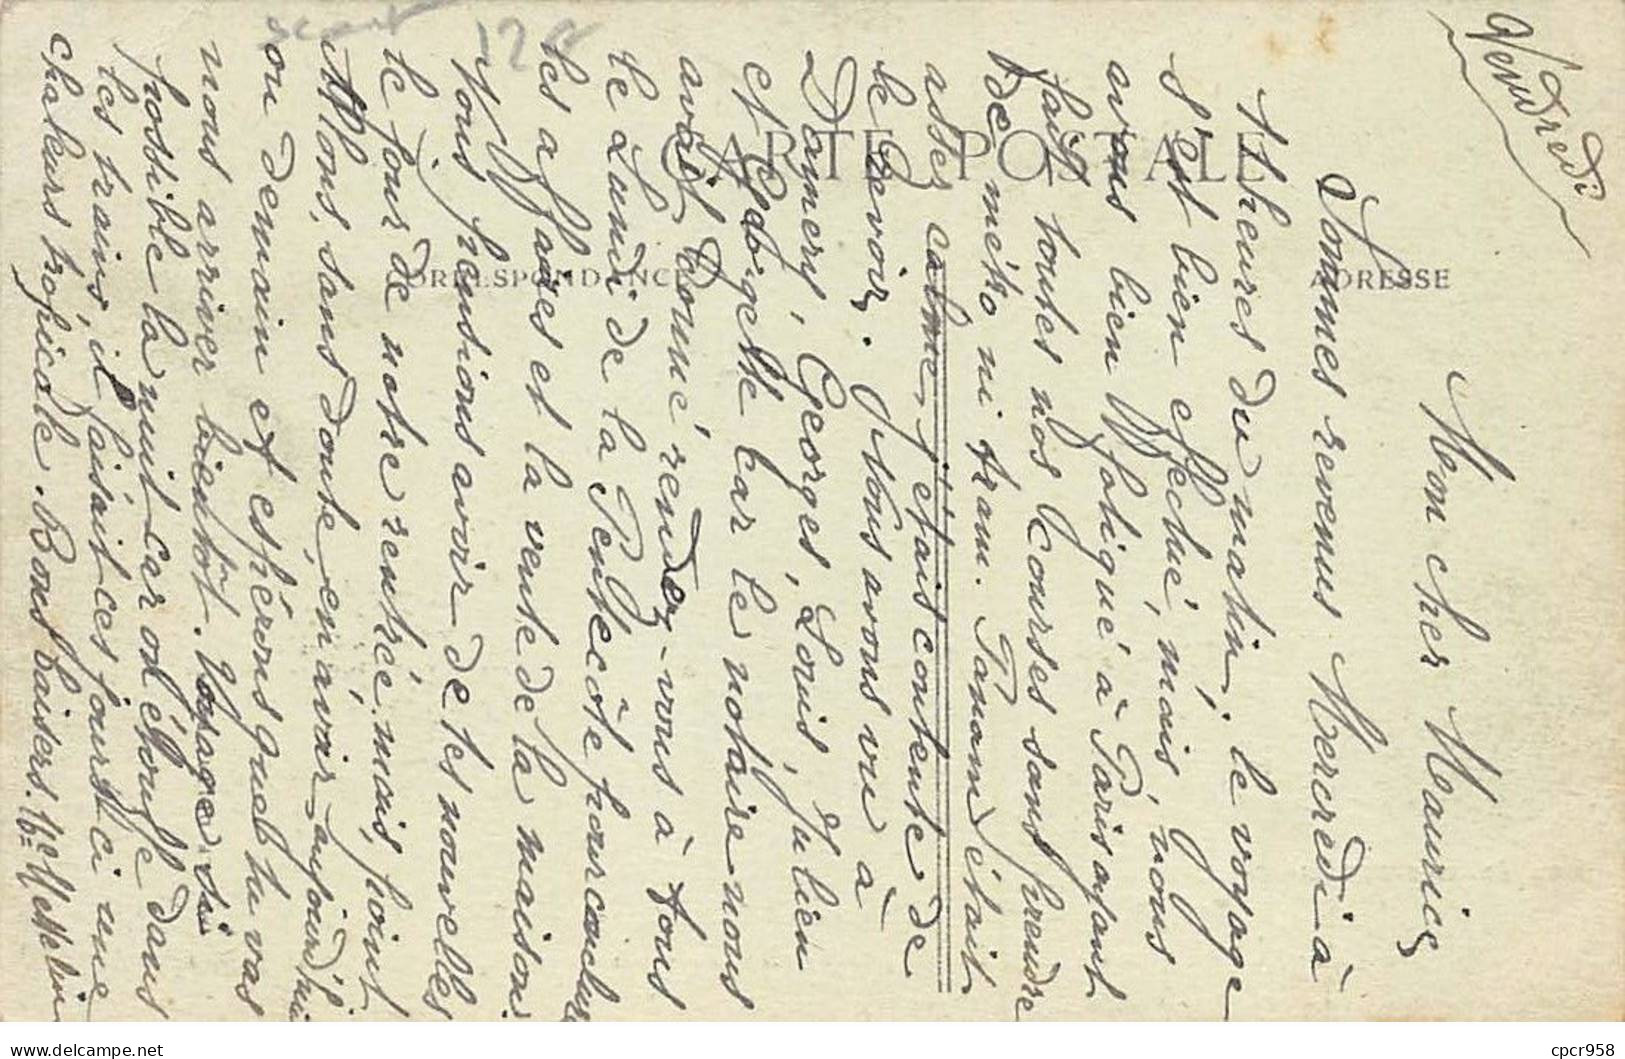 Vendredi
Mon cher Maurice
Sommes revenus Mercredi à
1 heures du matin, le voyage
s'est bien effectué, mais, nous
avons bien fatigué à Paris ayant
fait toutes nos Courses sans prendre
de métro ni tram. Panam était
assez calme, j'étais contente de
le revoir. Nous avons vu à
Damery, Georges, Louis, Julien
et Edogette car le notaire nous
avait donné rendez-vous à tous
le Lundi de la Pentecôte pour conclure
les affaires et la vente de la maison
Nous pensions avoir de tes nouvelles
le jour de notre rentrée, mais, point
Allons, sans doute, en avoir aujourd'hui
ou demain et espérons que tu vas
nous arriver bientôt. Voyage si
possible la nuit car on étouffe dans
les trains, il faisait ces jours-ci une
chaleur tropicale. Bons baisers.
CARTE POSTALE
CORRESPONDANCE
ADRESSE
delcampe.net
cpcr958